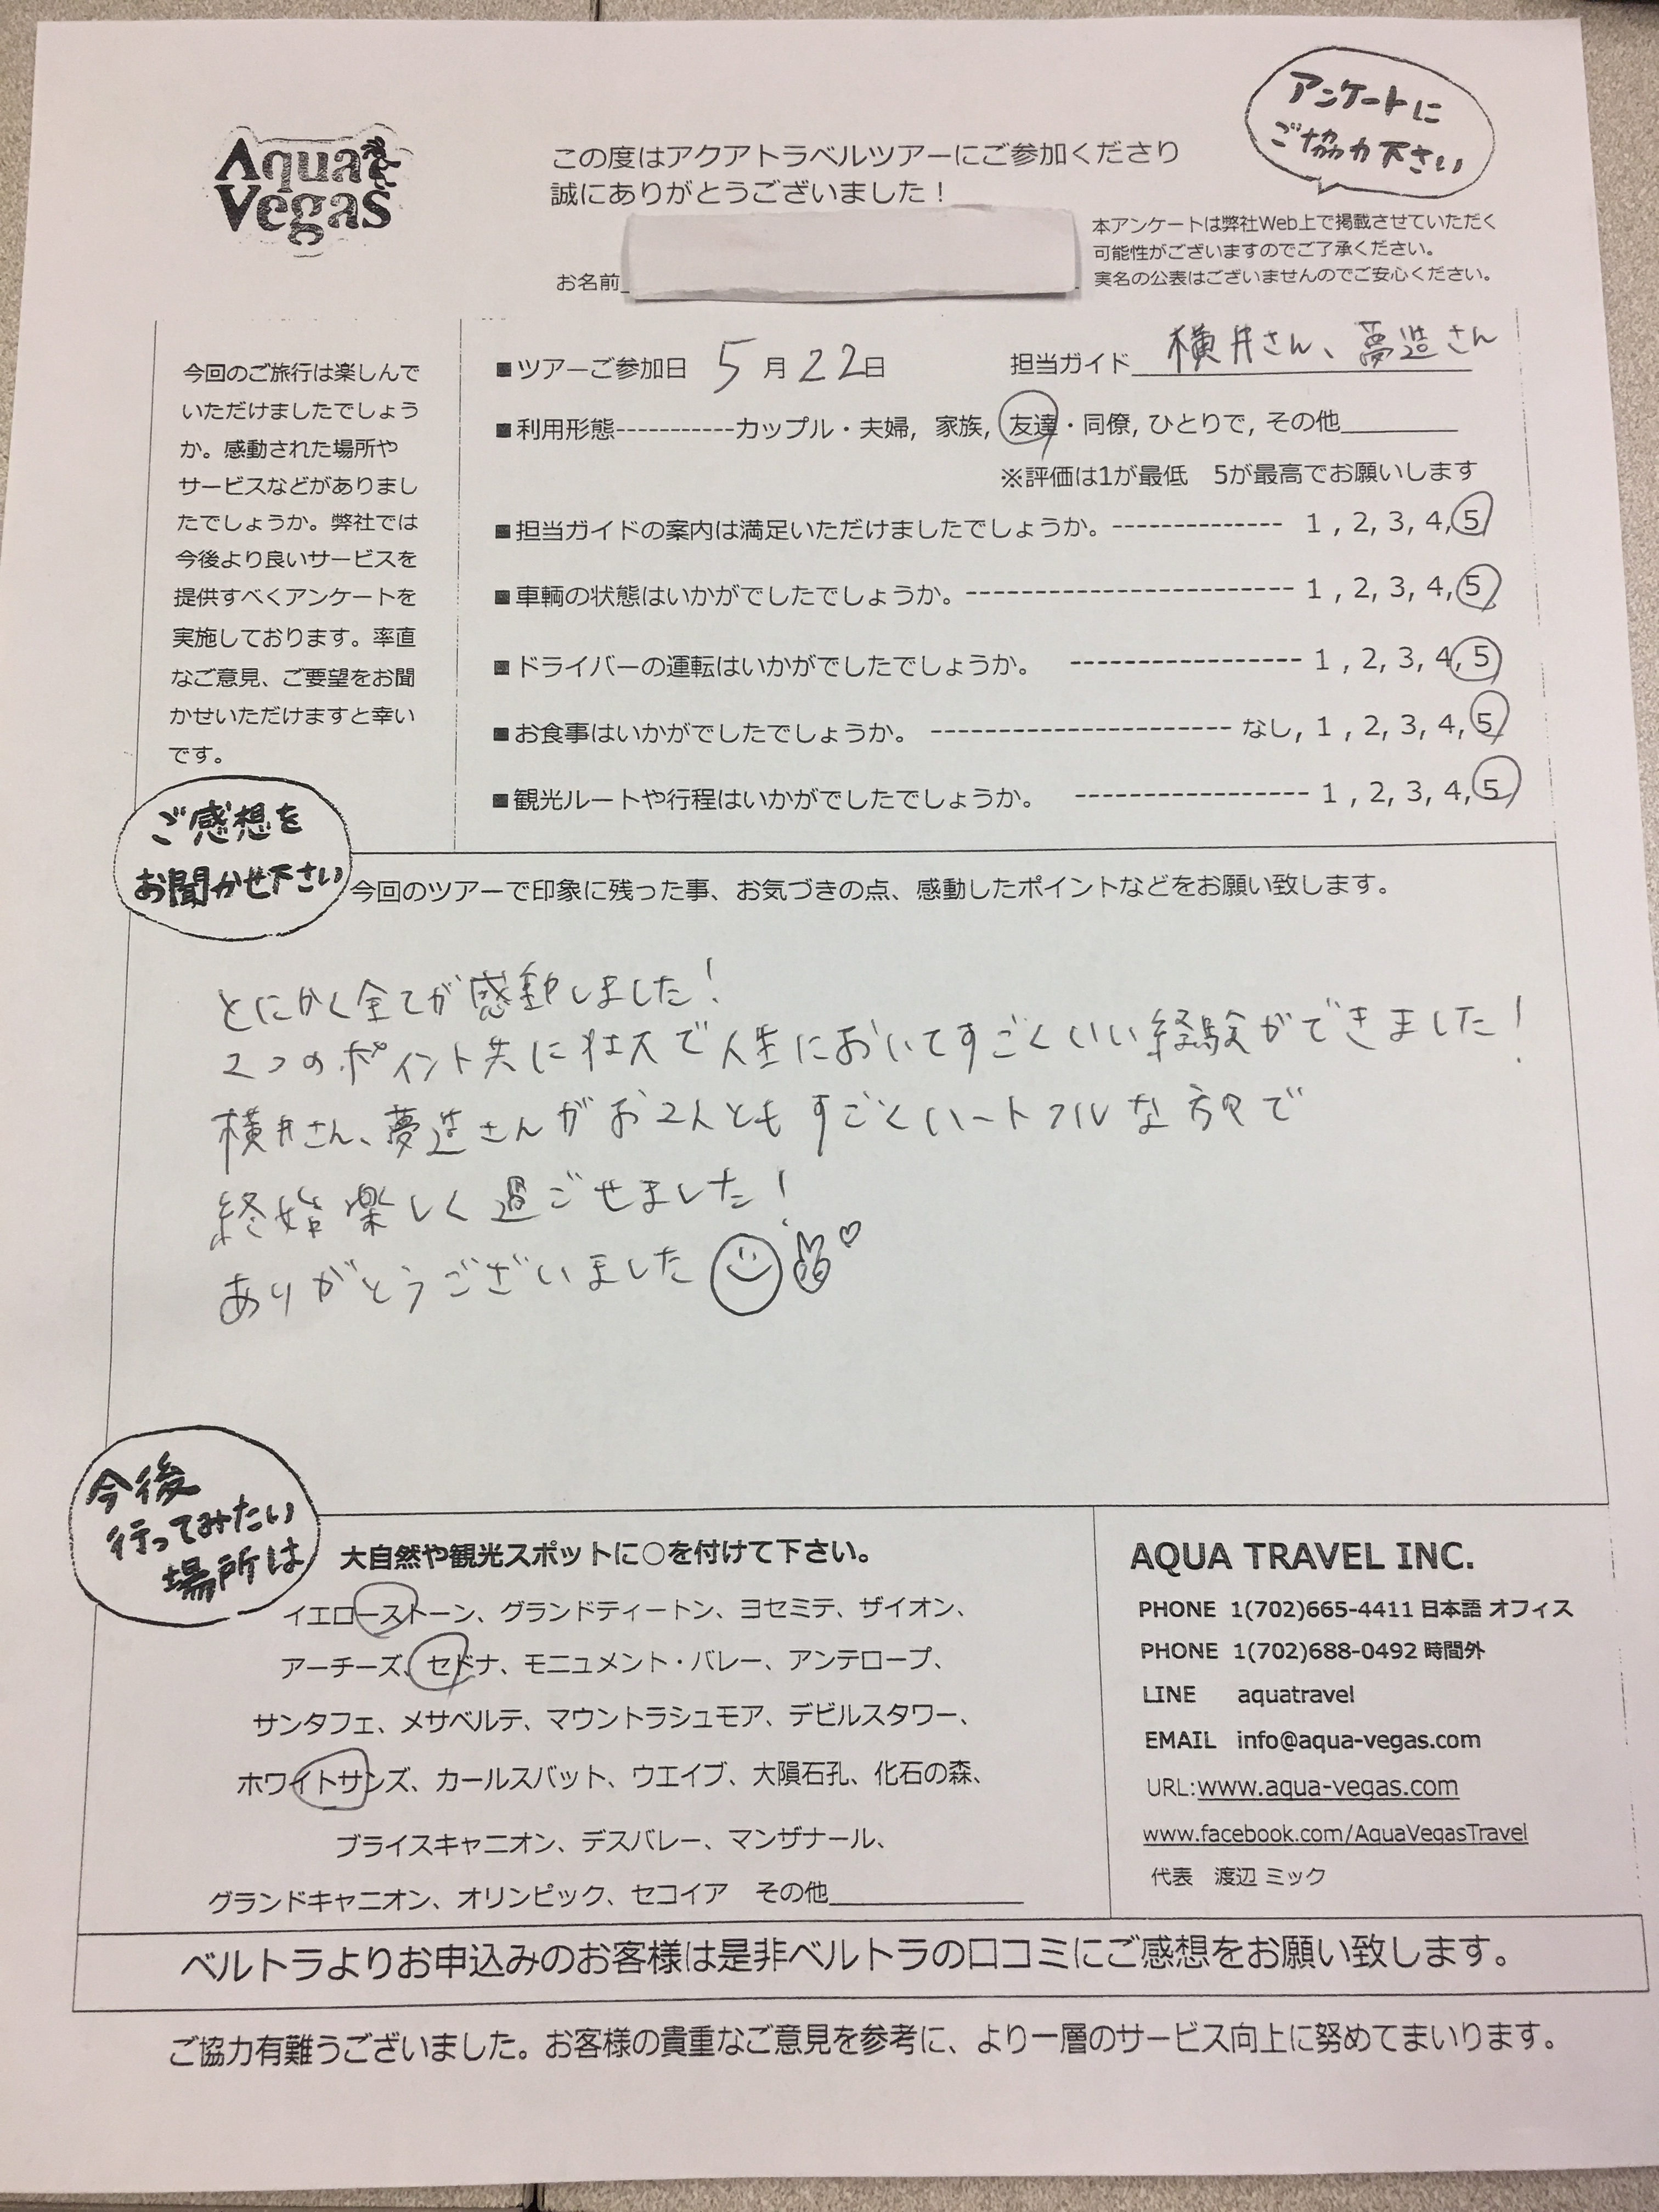 Aqua
Vegas
この度はアクアトラベルツアーにご参加くださり
誠にありがとうございました！
アンケートに
ご協力下さい
お名前
本アンケートは弊社Web上で掲載させていただく
可能性がございますのでご了承ください。
実名の公表はございませんのでご安心ください。
今回のご旅行は楽しんで
いただけましたでしょう
か。感動された場所や
サービスなどがありまし
たでしょうか。弊社では
今後より良いサービスを
提供すべくアンケートを
実施しております。率直
なご意見、ご要望をお聞
かせいただけますと幸い
です。
■ツアーご参加日 5月22日 担当ガイド 横井さん、夢造さん
■利用形態-----------カップル・夫婦, 家族, 友達・同僚, ひとりで, その他________
※評価は1が最低 5が最高でお願いします
■担当ガイドの案内は満足いただけましたでしょうか。-------------- 1 , 2, 3, 4, 5
■車輌の状態はいかがでしたでしょうか。------------------------ 1 , 2, 3, 4, 5
■ドライバーの運転はいかがでしたでしょうか。 ----------------- 1 , 2, 3, 4, 5
■お食事はいかがでしたでしょうか。 ---------------------- なし, 1 , 2, 3, 4, 5
■観光ルートや行程はいかがでしたでしょうか。 ----------------- 1 , 2, 3, 4, 5
ご感想を
お聞かせ下さい
今回のツアーで印象に残った事、お気づきの点、感動したポイントなどをお願い致します。
とにかく全てが感動しました！
2つのポイント共に壮大で人生においてすごくいい経験ができました！
横井さん、夢造さんがお2人ともすごくハートフルな方々で
終始楽しく過ごせました！
ありがとうございました
今後
行ってみたい
場所は
大自然や観光スポットに○を付けて下さい。
イエローストーン、グランドティートン、ヨセミテ、ザイオン、
アーチーズ、セドナ、モニュメント・バレー、アンテロープ、
サンタフェ、メサベルテ、マウントラシュモア、デビルスタワー、
ホワイトサンズ、カールスバット、ウエイブ、大隕石孔、化石の森、
ブライスキャニオン、デスバレー、マンザナール、
グランドキャニオン、オリンピック、セコイア その他______________
AQUA TRAVEL INC.
PHONE 1(702)665-4411 日本語 オフィス
PHONE 1(702)688-0492 時間外
LINE aquatravel
EMAIL info@aqua-vegas.com
URL:www.aqua-vegas.com
www.facebook.com/AquaVegasTravel
代表 渡辺 ミック
ベルトラよりお申込みのお客様は是非ベルトラの口コミにご感想をお願い致します。
ご協力有難うございました。お客様の貴重なご意見を参考に、より一層のサービス向上に努めてまいります。